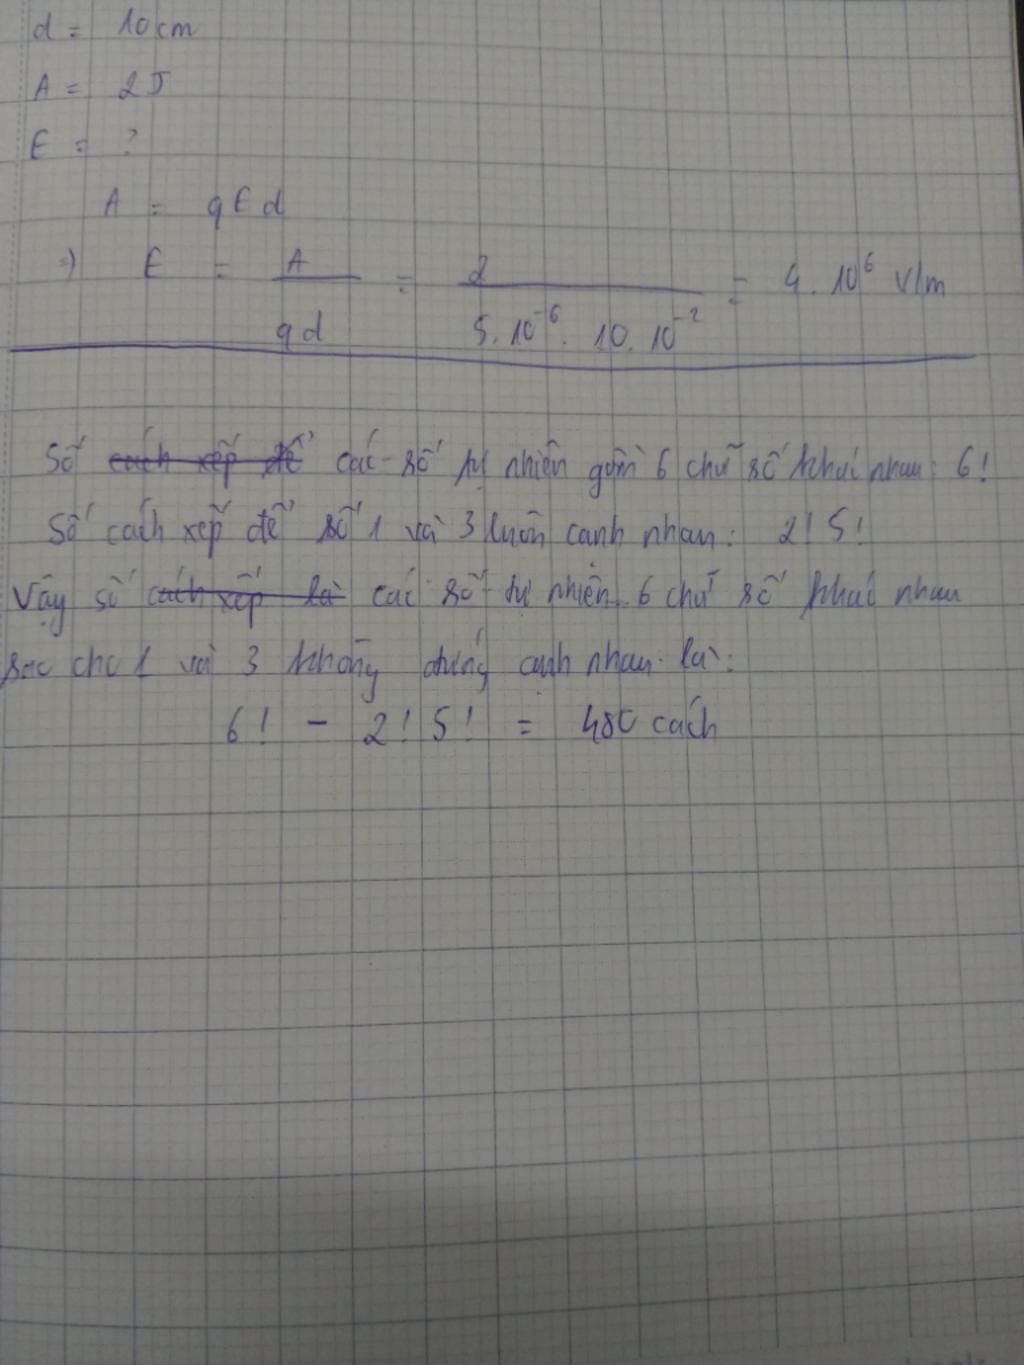 d = 10cm
A = 2J
E = ?
A = qEd
=) E = A / qd = 2 / 5.10^-6 . 10.10^-2 = 4.10^6 V/m
Số cách xếp để các số tự nhiên gồm 6 chữ số khác nhau: 6!
Số cách xếp để số 1 và 3 luôn cạnh nhau: 2! 5!
Vậy số cách xếp là các số tự nhiên 6 chữ số khác nhau
sao cho 1 và 3 không đứng cạnh nhau là:
6! - 2! 5! = 480 cách